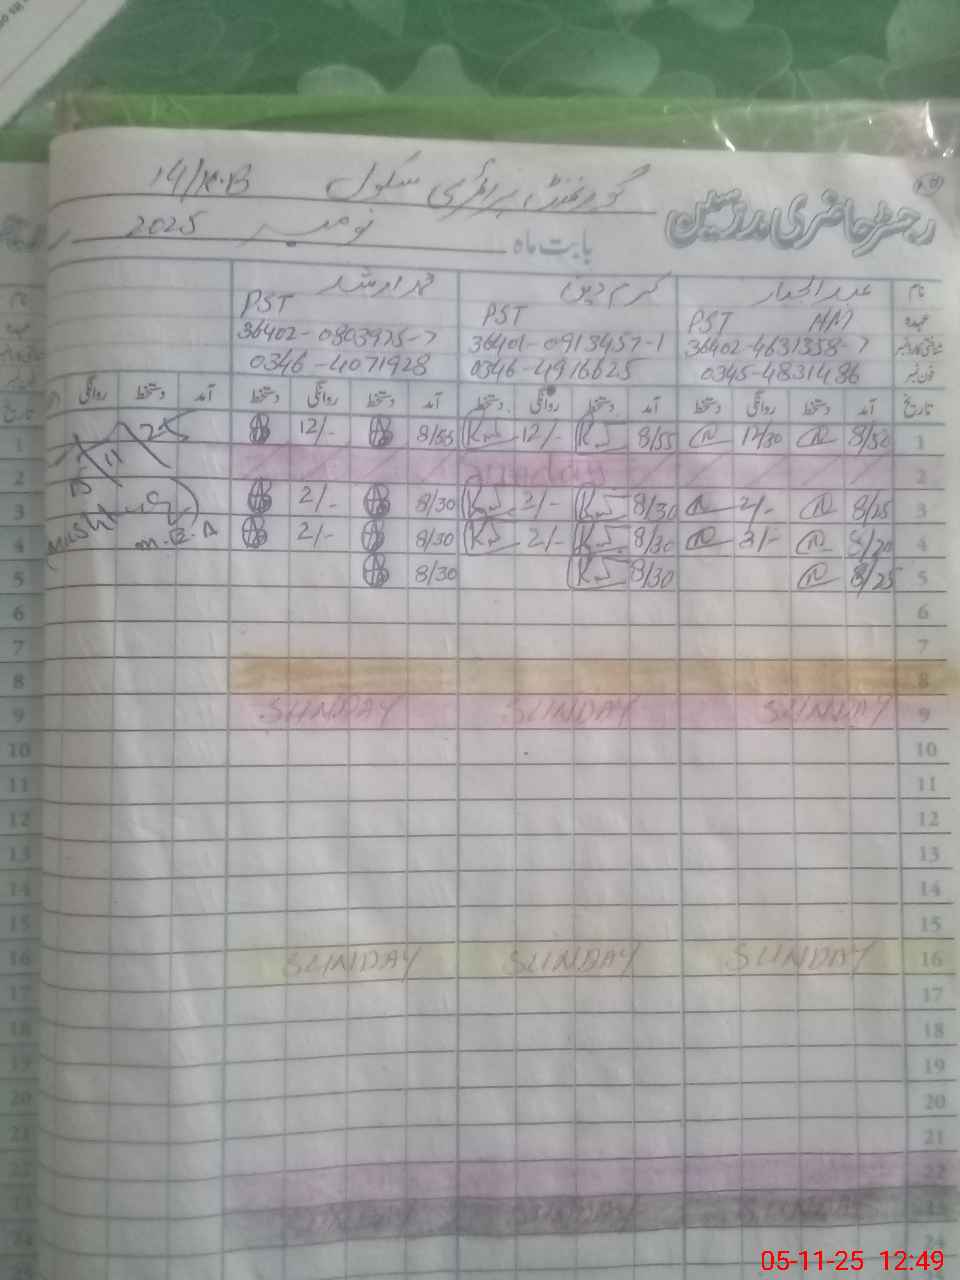 گورنمنٹ پرائمری سکول 14/K.B
رجسٹر حاضری مدرسین
بابت ماہ نومبر 2025
نام عبدالجبار کرم دین محمد ارشد
عہدہ PST HM PST PST
36402-4631358-7 36401-0913457-1 36402-0803975-7
فون نمبر 0345-4831486 0346-4916625 0346-4071928
تاریخ آمد دستخط روانگی دستخط آمد دستخط روانگی دستخط آمد دستخط روانگی دستخط آمد دستخط روانگی
1 8/50 12/30 8/55 12/- 8/55 12/-
2 Sunday
3 8/25 2/- 8/30 2/- 8/30 2/-
4 8/20 2/- 8/30 2/- 8/30 2/-
5 8/25 8/30 8/30
6
7
8
9 SUNDAY SUNDAY SUNDAY
10
11
12
13
14
15
16 SUNDAY SUNDAY SUNDAY
17
18
19
20
21
22
23 SUNDAY SUNDAY SUNDAY
24
05-11-25 12:49